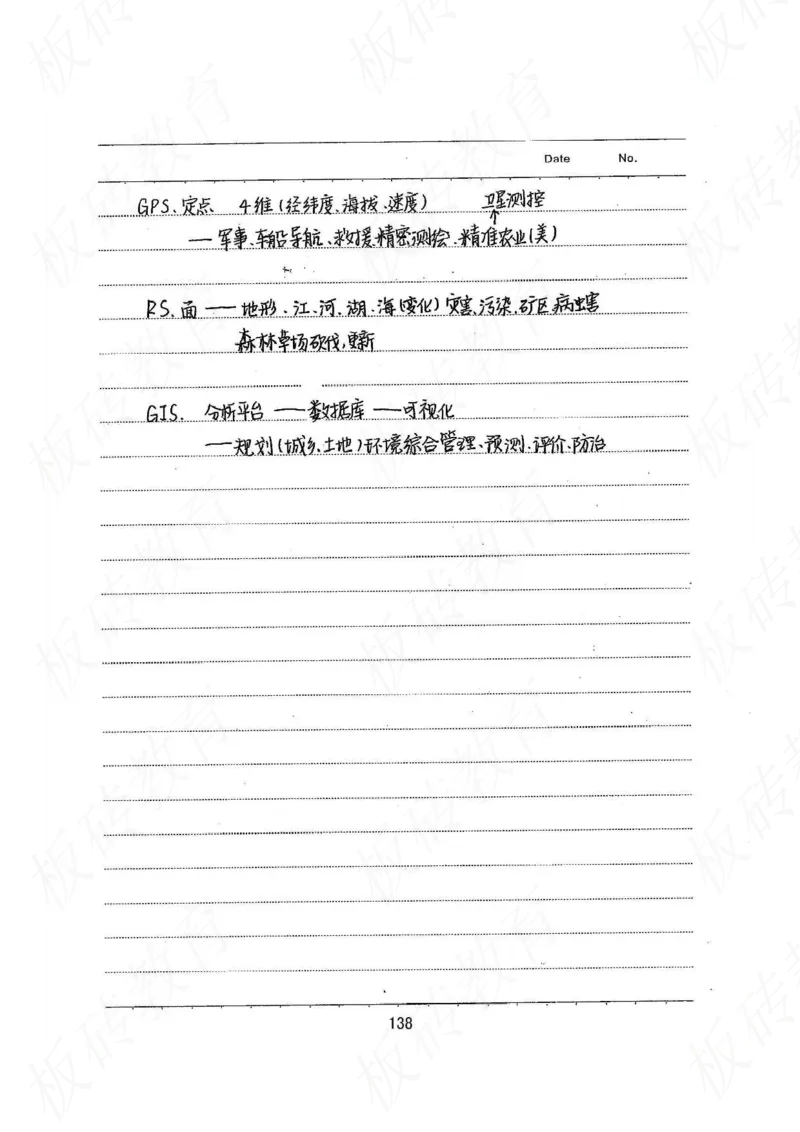 Date No.
GPS、定点 4维(经纬度、海拔、速度) 卫星测控
↑
— 军事、车船导航、救援、精密测绘、精准农业(美)
RS、面 — 地形、江、河、湖、海(变化)灾害、污染、矿区病虫害
森林草场砍伐,更新
GIS. 分析平台 — 数据库 — 可视化
— 规划(城乡、土地)环境综合管理、预测、评价、防治
138
板砖教育